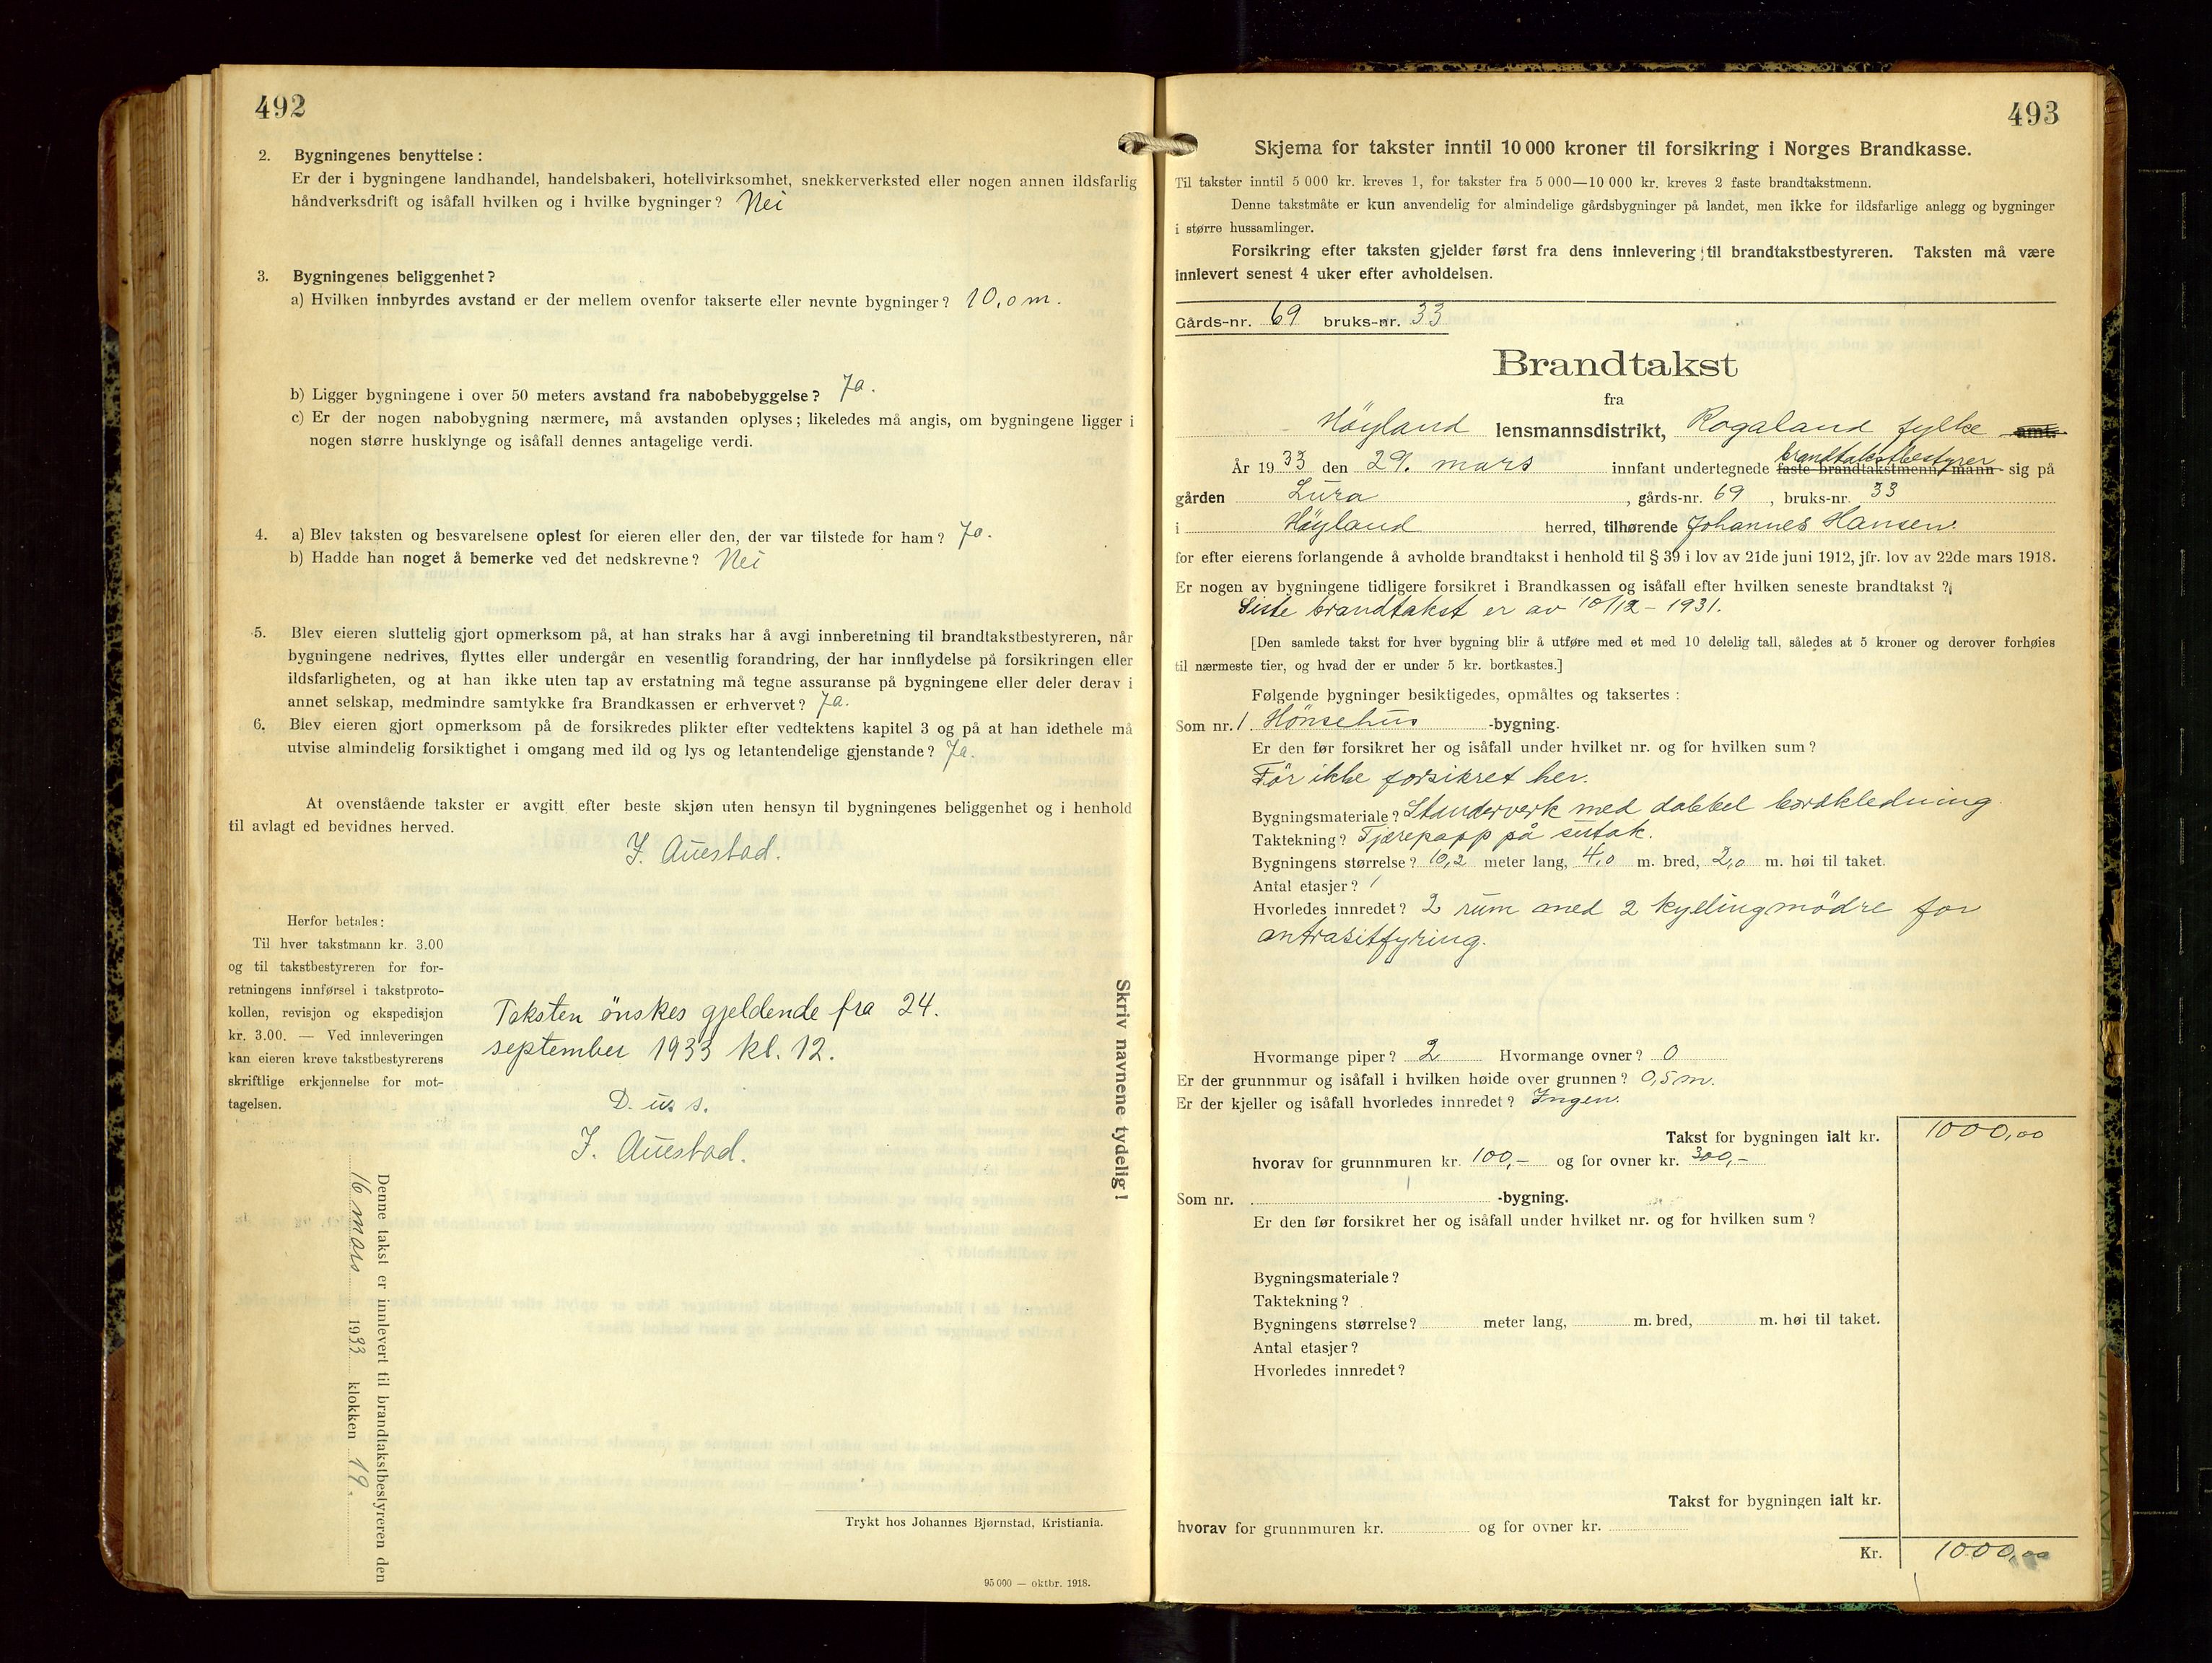 492
2. Bygningenes benyttelse :
Er der i bygningene landhandel, handelsbakeri, hotellvirksomhet, snekkerverksted eller nogen annen ildsfarlig
håndverksdrift og isåfall hvilken og i hvilke bygninger? Nei
3. Bygningenes beliggenhet?
a) Hvilken innbyrdes avstand er der mellem ovenfor takserte eller nevnte bygninger? 10,0 m.
b) Ligger bygningene i over 50 meters avstand fra nabobebyggelse? Ja.
c) Er der nogen nabobygning nærmere, må avstanden oplyses; likeledes må angis, om bygningene ligger i
nogen større husklynge og isåfall dennes antagelige verdi.
4. a) Blev taksten og besvarelsene oplest for eieren eller den, der var tilstede for ham? Ja.
b) Hadde han noget å bemerke ved det nedskrevne? Nei
5. Blev eieren sluttelig gjort opmerksom på, at han straks har å avgi innberetning til brandtakstbestyreren, når
bygningene nedrives, flyttes eller undergår en vesentlig forandring, der har innflydelse på forsikringen eller
ildsfarligheten, og at han ikke uten tap av erstatning må tegne assuranse på bygningene eller deler derav i
annet selskap, medmindre samtykke fra Brandkassen er erhvervet? Ja.
6. Blev eieren gjort opmerksom på de forsikredes plikter efter vedtektens kapitel 3 og på at han idethele må
utvise almindelig forsiktighet i omgang med ild og lys og letantendelige gjenstande? Ja.
At ovenstående takster er avgitt efter beste skjøn uten hensyn til bygningenes beliggenhet og i henhold
til avlagt ed bevidnes herved.
J. Auestad.
Herfor betales:
Til hver takstmann kr. 3.00
og til takstbestyreren for for-
retningens innførsel i takstproto-
kollen, revisjon og ekspedisjon
kr. 3.00. — Ved innleveringen
kan eieren kreve takstbestyrerens
skriftlige erkjennelse for mot-
tagelsen.
Taksten önskes gjeldende fra 24.
september 1933 kl. 12.
D. u. s.
J. Auestad.
Skriv navnene tydelig!
Denne takst er innlevert til brandtakstbestyreren den
16 mars 1933 klokken 19.
Trykt hos Johannes Bjørnstad, Kristiania.
95 000 — oktbr. 1918.
493
Skjema for takster inntil 10 000 kroner til forsikring i Norges Brandkasse.
Til takster inntil 5 000 kr. kreves 1, for takster fra 5 000—10 000 kr. kreves 2 faste brandtakstmenn.
Denne takstmåte er kun anvendelig for almindelige gårdsbygninger på landet, men ikke for ildsfarlige anlegg og bygninger
i større hussamlinger.
Forsikring efter taksten gjelder først fra dens innlevering til brandtakstbestyreren. Taksten må være
innlevert senest 4 uker efter avholdelsen.
Gårds-nr. 69 bruks-nr. 33
Brandtakst
fra
Höyland lensmannsdistrikt, Rogaland fylke amt.
År 1933 den 29. mars innfant undertegnede faste brandtakstmenn/mann brandtakstbestyrer sig på
gården Lura, gårds-nr. 69, bruks-nr. 33
i Höyland herred, tilhørende Johannes Hansen.
for efter eierens forlangende å avholde brandtakst i henhold til § 39 i lov av 21de juni 1912, jfr. lov av 22de mars 1918.
Er nogen av bygningene tidligere forsikret i Brandkassen og isåfall efter hvilken seneste brandtakst?
Siste brandtakst er av 10/12 - 1931.
[Den samlede takst for hver bygning blir å utføre med et med 10 delelig tall, således at 5 kroner og derover forhøies
til nærmeste tier, og hvad der er under 5 kr. bortkastes.]
Følgende bygninger besiktigedes, opmåltes og taksertes :
Som nr. 1 Hönsehus -bygning.
Er den før forsikret her og isåfall under hvilket nr. og for hvilken sum?
För ikke forsikret her.
Bygningsmateriale? Standerverk med dobbel bordkledning
Taktekning? Tjærepapp på sutak.
Bygningens størrelse? 10,2 meter lang, 4,0 m. bred, 2,0 m. høi til taket.
Antal etasjer? 1
Hvorledes innredet? 2 rum med 2 kyllingmödre for
antrasitfyring.
Hvormange piper? 2 Hvormange ovner? 0
Er der grunnmur og isåfall i hvilken høide over grunnen? 0,5 m.
Er der kjeller og isåfall hvorledes innredet? Ingen.
Takst for bygningen ialt kr. 1000,00
hvorav for grunnmuren kr. 100,- og for ovner kr. 300,-
Som nr. -bygning.
Er den før forsikret her og isåfall under hvilket nr. og for hvilken sum?
Bygningsmateriale?
Taktekning?
Bygningens størrelse? meter lang, m. bred, m. høi til taket.
Antal etasjer?
Hvorledes innredet?
Takst for bygningen ialt kr.
hvorav for grunnmuren kr. og for ovner kr.
Kr. 1000,00